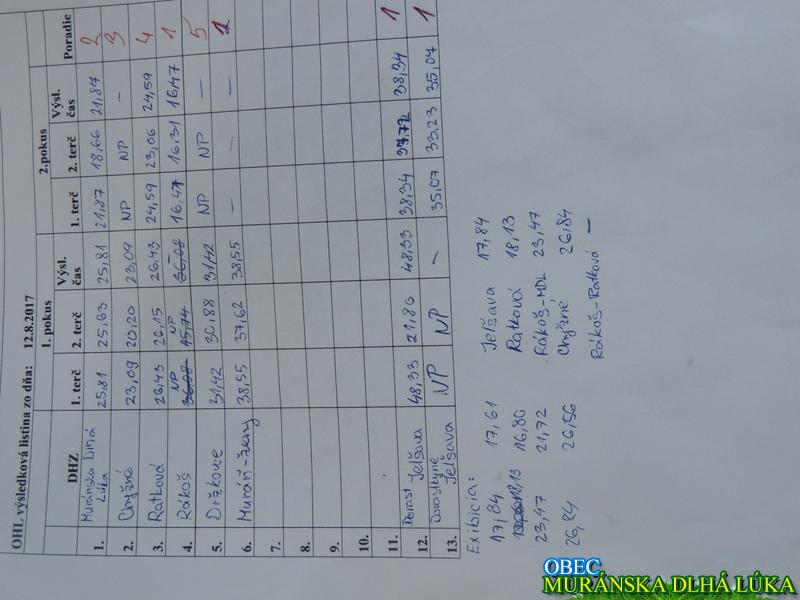 OHL výsledková listina zo dňa: 12.8.2017
DHZ 1.pokus 2.pokus Poradie
1. terč 2. terč Výsl. čas 1. terč 2. terč Výsl. čas
1. Muránska Dlhá Lúka 25,81 25,63 25,81 21,87 18,66 21,87 2
2. Chyžné 23,09 20,20 23,09 NP NP – 3
3. Ratková 26,43 26,15 26,43 24,59 23,06 24,59 4
4. Rákoš NP 36,08 NP 45,74 36,08 – 16,47 16,31 16,47 1
5. Držkovce 31,42 30,88 31,42 NP NP – 5
6. Muráň-ženy 38,55 37,62 38,55 – – – 1
7.
8.
9.
10.
11. Dorast Jelšava 48,33 21,80 48,33 38,34 37,72 38,34 1
12. Dorastkyne Jelšava NP NP – 35,07 33,23 35,07 1
13.
Exibícia:
17,84 17,61 Jelšava 17,84
18,13 16,80 Ratková 18,13
23,47 21,72 Rákoš-MDL 23,47
26,84 26,56 Chyžné 26,84
Rákoš-Ratková –
OBEC
MURÁNSKA DLHÁ LÚKA